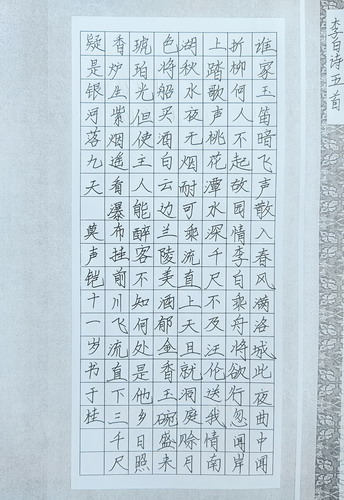 李白诗五首
谁家玉笛暗飞声散入春风满洛城此夜曲中闻
折柳何人不起故园情李白乘舟将欲行忽闻岸
上踏歌声桃花潭水深千尺不及汪伦送我情南
湖秋水夜无烟耐可乘流直上天且就洞庭赊月
色将船买酒白云边兰陵美酒郁金香玉碗盛来
琥珀光但使主人能醉客不知何处是他乡日照
香炉生紫烟遥看瀑布挂前川飞流直下三千尺
疑是银河落九天 莫声铠十一岁书于桂